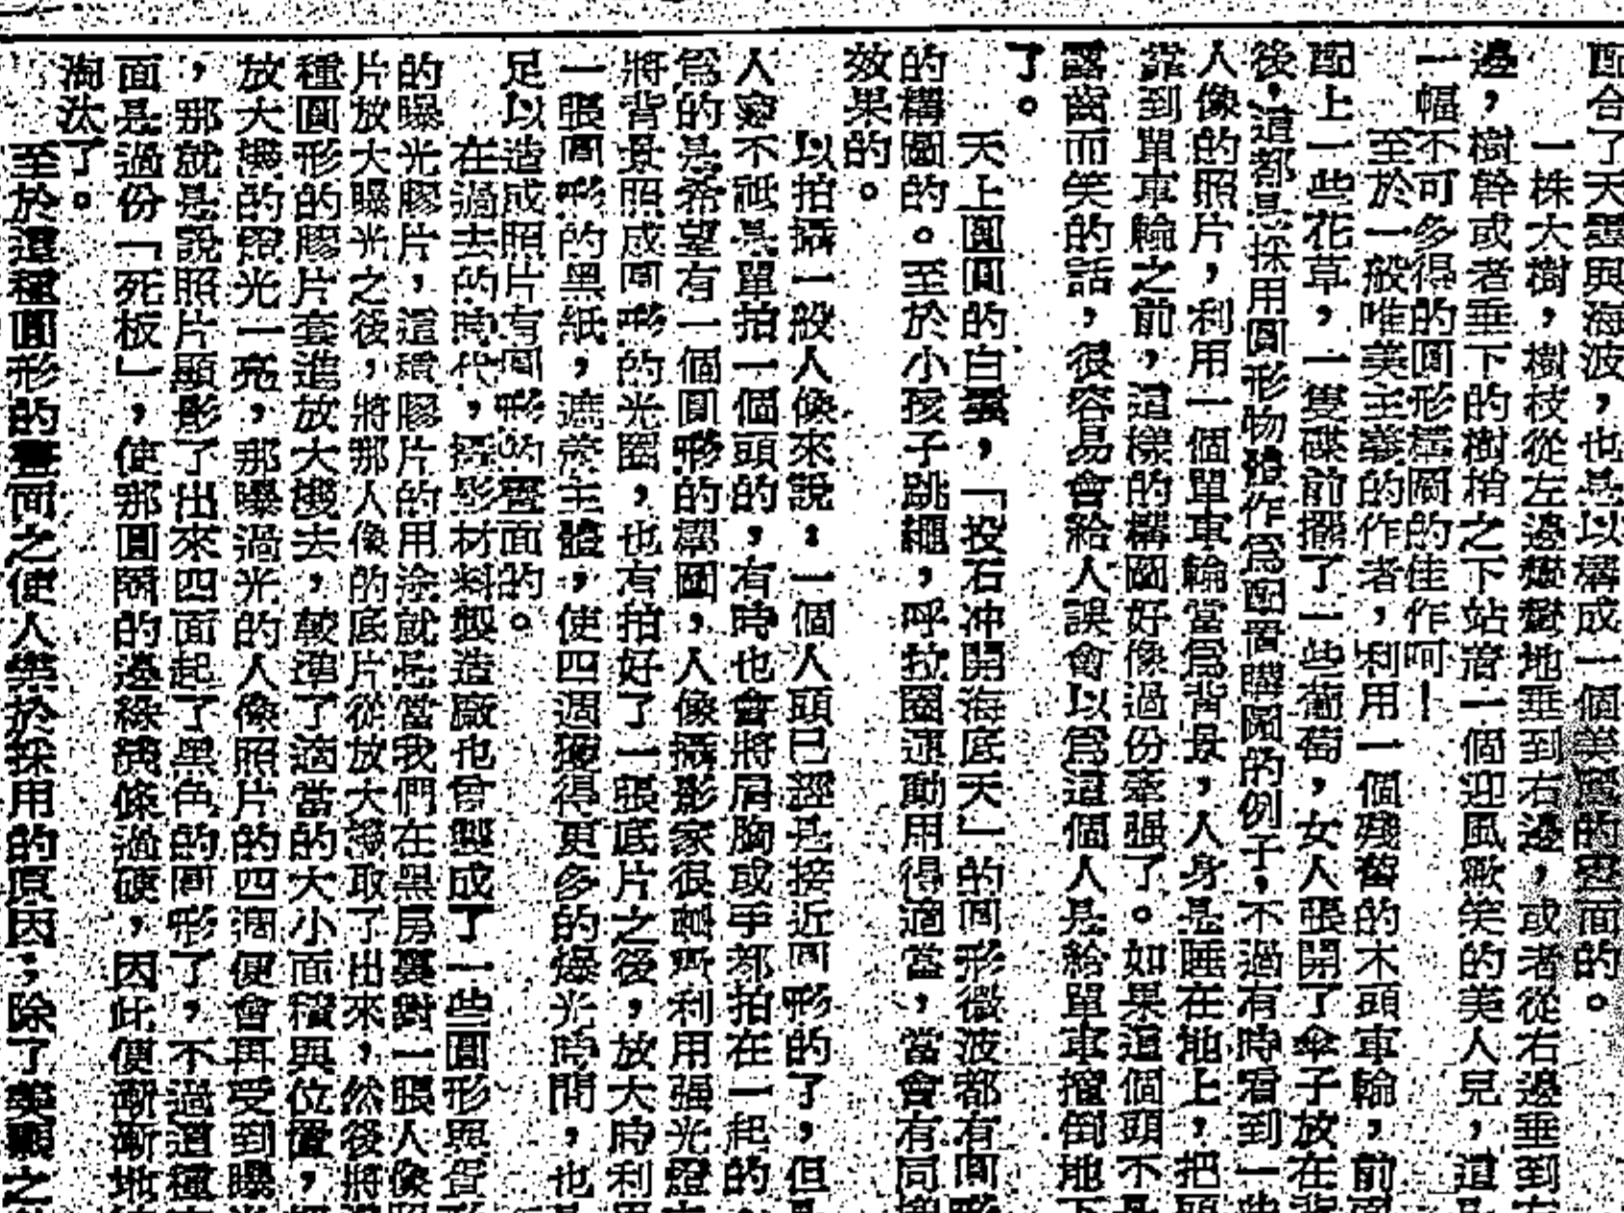 配合了天雲與海波，也是以構成一個美麗的畫面的。
一株大樹，樹枝從左邊彎彎地垂到右邊，或者從右邊垂到左
邊，樹幹或者垂下的樹梢之下站着一個迎風歡笑的美人兒，這是
一幅不可多得的圓形構圖的佳作呵！
至於一般唯美主義的作者，利用一個殘舊的木頭車輪，前面
配上一些花草，一隻碟前擺了一些葡萄，女人張開了傘子放在背
後，這都是採用圓形物體作爲配置構圖的例子，不過有時看到一些
人像的照片，利用一個單車輪當爲背景，人身是睡在地上，把頭
靠到單車輪之前，這樣的構圖好像過份牽强了。如果這個頭不是
露齒而笑的話，很容易會給人誤會以爲這個人是給單車撞倒地下
了。
天上圓圓的白雲，「投石冲開海底天」的圓形微波都有圓形
的構圖的。至於小孩子跳繩，呼拉圈運動用得適當，當會有同樣
效果的。
以拍攝一般人像來說：一個人頭已經是接近圓形的了，但是
人家不祇是單拍一個頭的，有時也會將肩胸或手部拍在一起的
爲的是希望有一個圓形的構圖，人像攝影家很多所利用强光燈
將背景照成圓形的光圈，也有拍好了一張底片之後，放大時利用
一張圓形的黑紙，遮蓋主體，使四週獲得更多的爆光時間，也是
足以造成照片有圓形的畫面的。
在過去的時代，攝影材料製造廠也曾製成了一些圓形照質
的曝光膠片，這種膠片的用途就是當我們在黑房裏對一張人像照
片放大曝光之後，將那人像的底片從放大機取了出來，然後將這
種圓形的膠片套進放大機去，較準了適當的大小面積與位置，
放大機的照光一亮，那曝過光的人像照片的四週便會再受到曝光
，那就是說照片顯影了出來四面起了黑色的圓形了，不過這種
面是過份「死板」，使那圓圈的邊緣綫條過硬，因此便漸漸地
淘汰了。
至於這種圓形的畫面之使人樂於採用的原因；除了美觀之